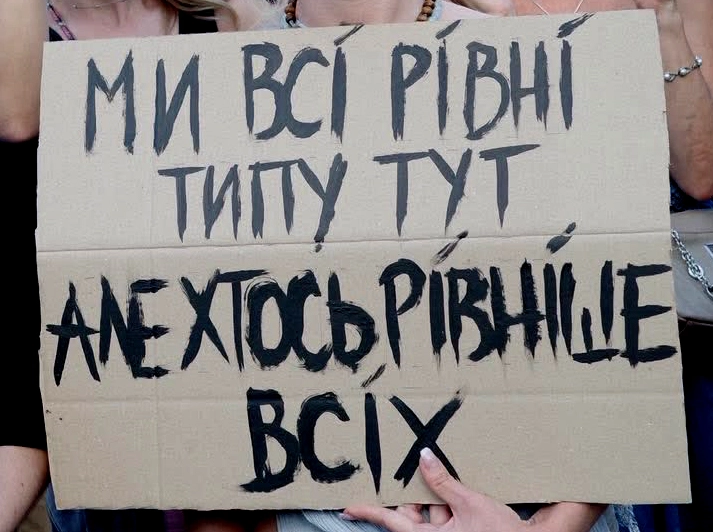 МИ ВСІ РІВНІ
ТИПУ ТУТ
АЛЕ ХТОСЬ РІВНІШЕ
ВСІХ